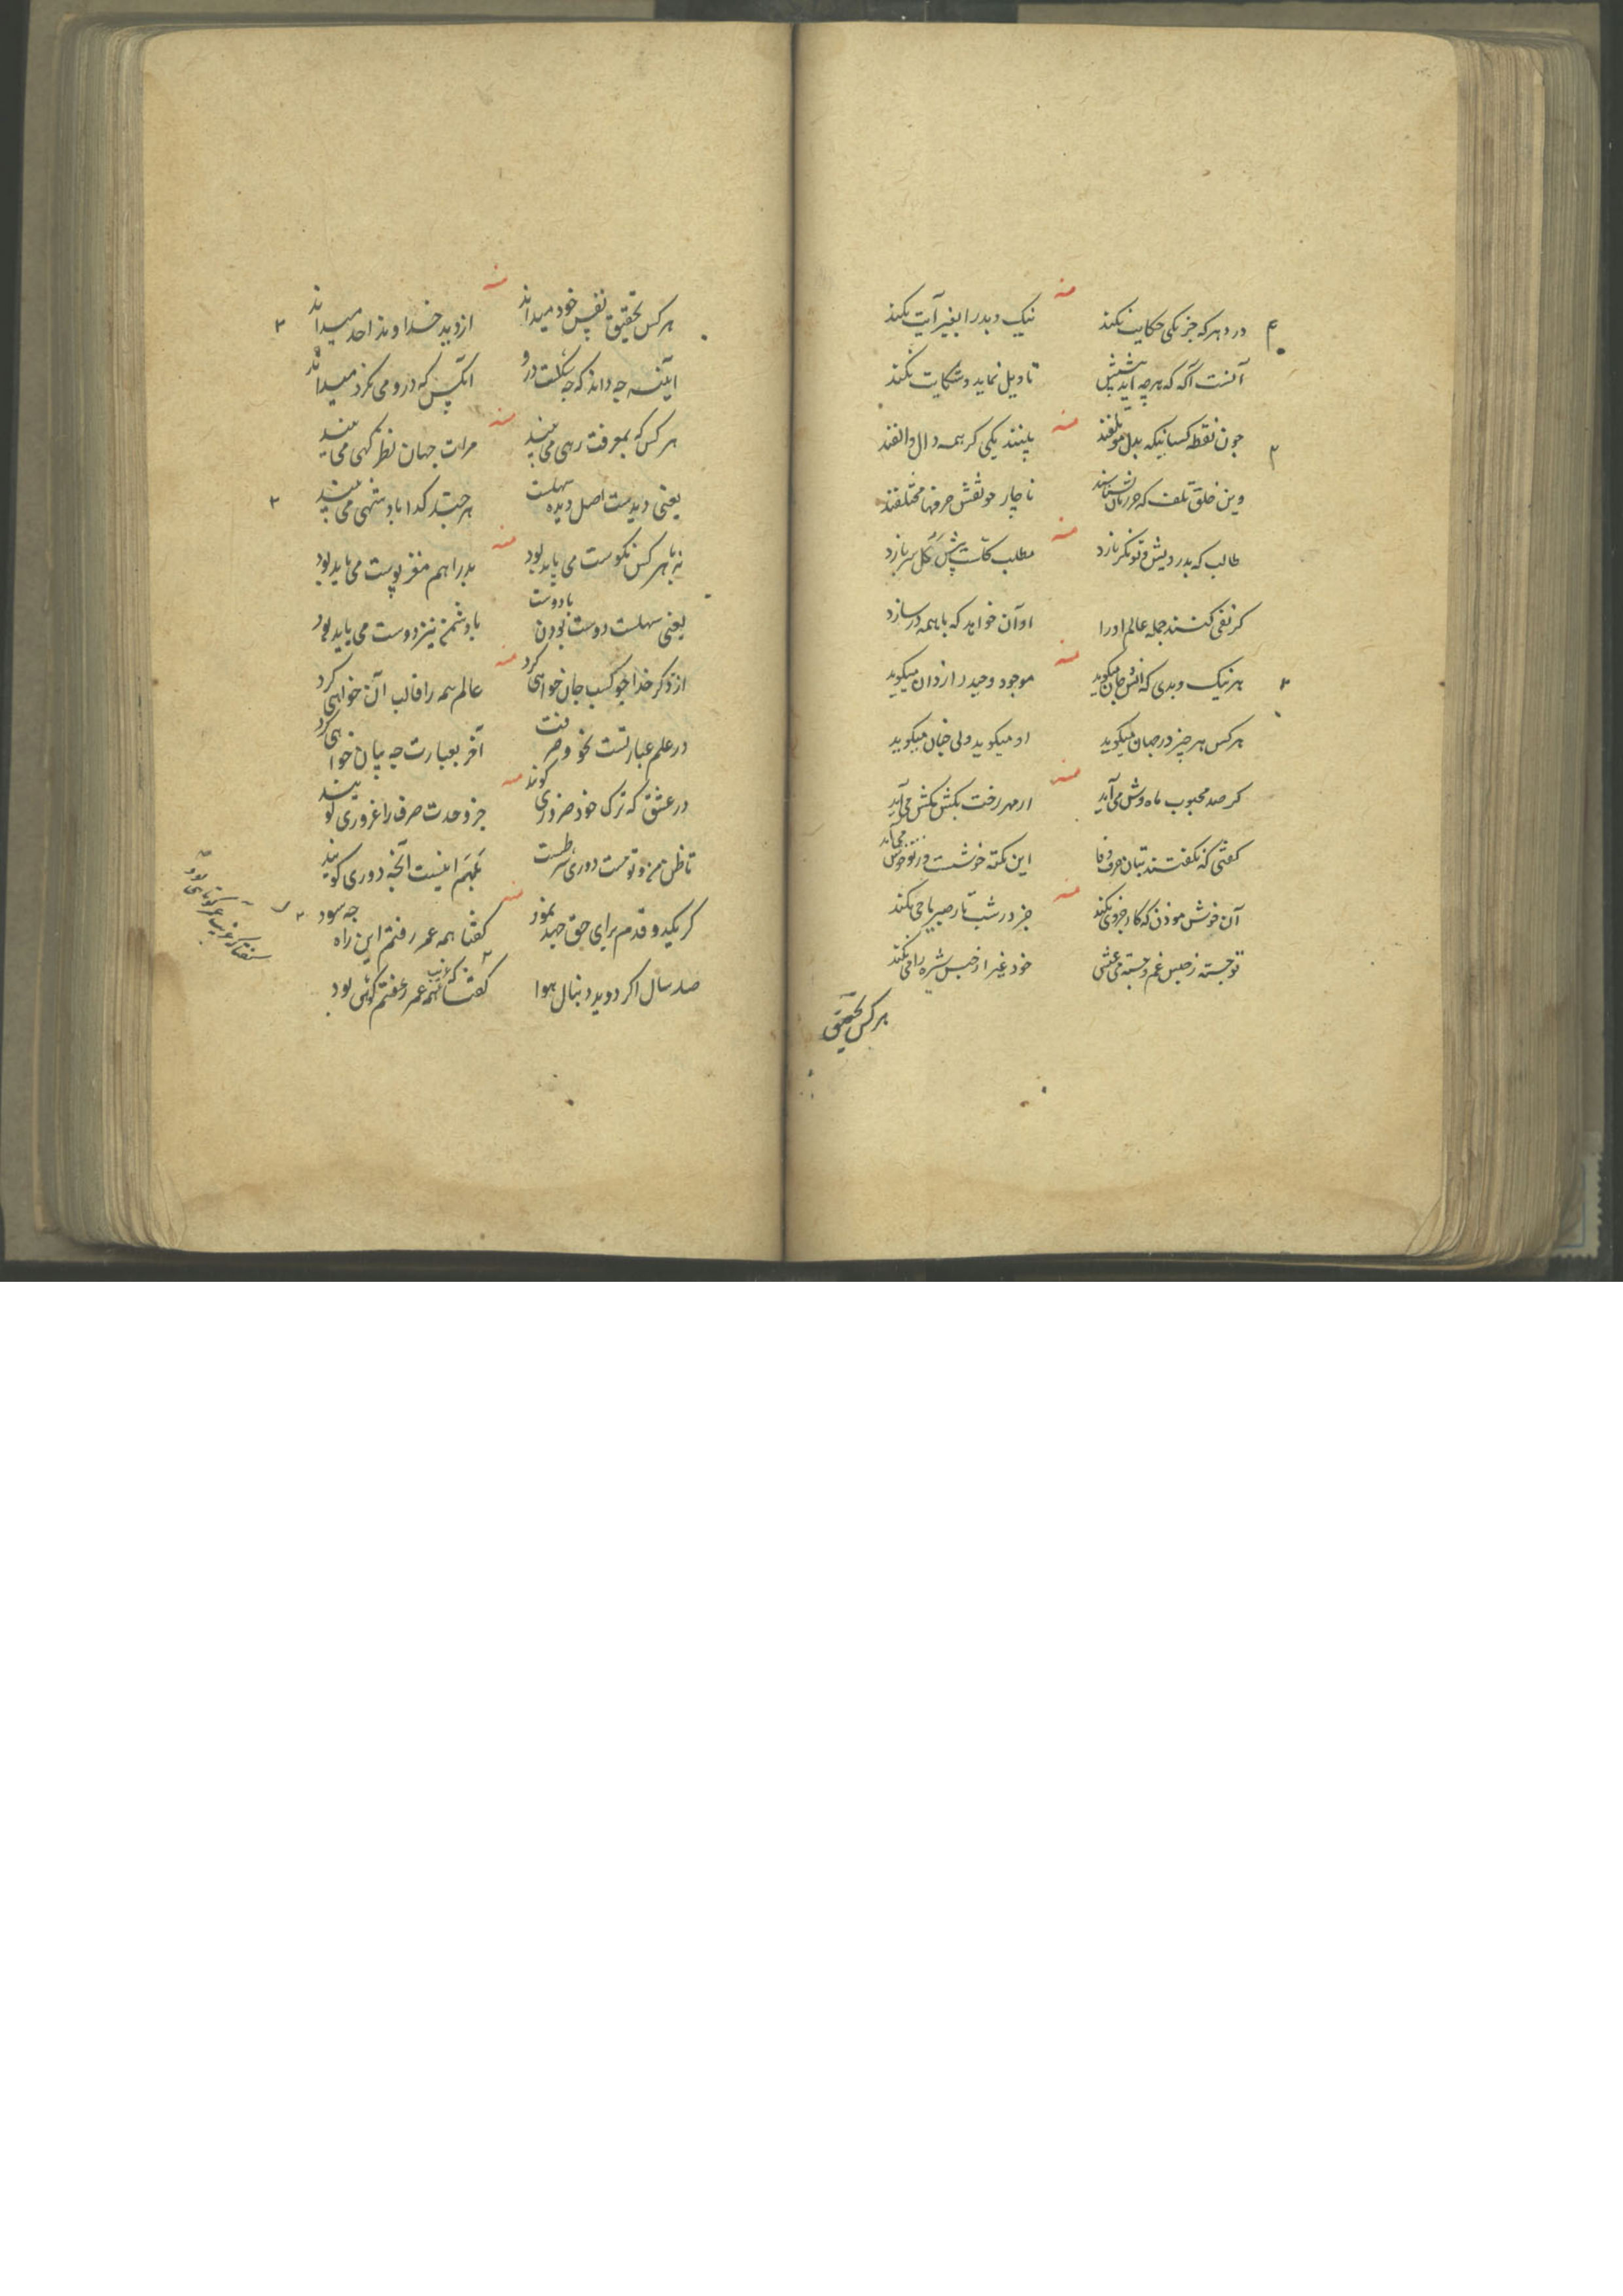 منه
در دهر که جز یکی حکایت نکند نیک و بد را بغیر آیت نکند
آنست آگه که هرچه آید پیشش تاویل نماید و شکایت نکند
منه
چون نقطه کسانیکه بدل موتلفند بینند یکی کر همه دال و الفند
وین خلق تلف که ناچار چو نقش حرفها مختلفند
منه
طالب که بدرویش و تونکر نازد مطلب پیش کل سر بازد
کر نفی کنند جمله عالم او را او آن خواهد که با همه در سازد
منه
هر نیک و بدی که انس و جان میکوید موجود وحید راز دان میکوید
هر کس هر چیز در جهان میکوید او میکوید ولی چنان میکوید
منه
کر صد محبوب ماه وش می آید از مهر رخت بکش مکش می آید
کفتی که نکفتند بتان حرف وفا این نکته خوشست و ز تو خوش می آید
منه
آن خوش موذن که کار جز وی نکند جز در شب تار صبر یا حی نکند
تو جسته ز حبس غم و جسته می عشی خود غیر از حبس شره را می نکند
هر کس بتحقیق
منه
هر کس بتحقیق نفس خود میداند از دید خداوند احد میداند
آینه چه داند که چه شکلت درو آنکس که درو می نکرد میداند
منه
هر کس که بمعرفت رهی می بیند مرات جهان نظر کهی می بیند
یعنی دیدست اصل دیده سهلست هر چند کدا بادشهی می بیند
منه
نه با هر کس نکوست می باید بود بد را هم مغز پوست می باید بود
یعنی سهلست دوست بودن با دوست با دشمن نیز دوست می باید بود
منه
از ذکر خدا چو کسب جان خواهی کرد عالم همه را قالب آن خواهی کرد
در علم عبارتست نحو و صرفت آخر بعبارت چه بیان خواهی کرد
منه
در عشق که ترک خود ضروری کویند جز وحدت صرف را غروری کویند
تا ظن من و تو هست دوری شرطست بکهم اینست آنچه دوری کویند
منه
کر یکدو قدم برای حق جهد نمود کفتا همه عمر رفتم این راه چه سود
صد سال اکر دوید دنبال هوا کفتا همه عمر رفتم کوتهی بود
که غریب